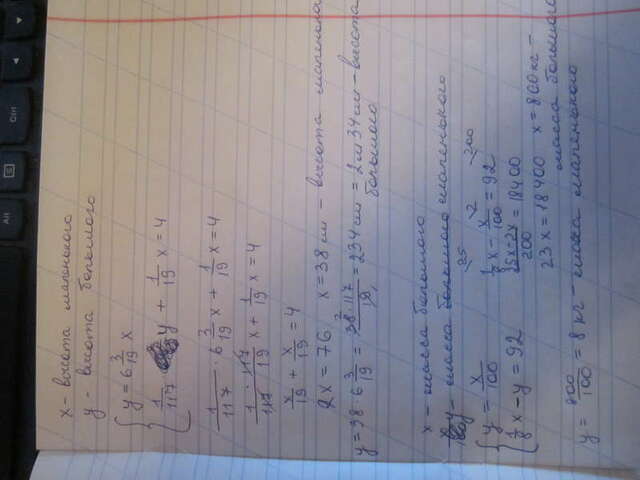 x - высота маленького
y - высота большого
{ y = 6 3/19 x
{ 1/117 · y + 1/19 x = 4
1/117 · 6 3/19 x + 1/19 x = 4
1/117 · 117/19 x + 1/19 x = 4
x/19 + x/19 = 4
2x = 76 x = 38 см - высота маленького
y = 38 · 6 3/19 = 38·117/19 = 234 см = 2м 34 см - высота большого
x - масса большого
y - масса маленького
{ y = x/100
{ 1/8 x - y = 92
1/8 x - x/100 = 92
25x-2x/200 = 18400/200
23x = 18400 x = 800 кг - масса большого
y = 800/100 = 8 кг - масса маленького